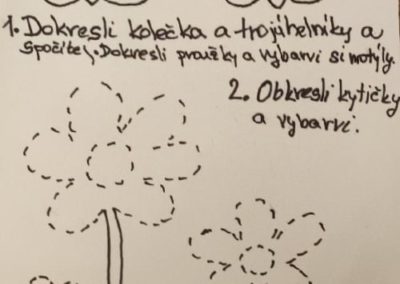 1. Dokresli kolečka a trojúhelníky a
spočítej. Dokresli proužky a vybarvi si motýly.
2. Obkresli kytičky
a vybarvi.